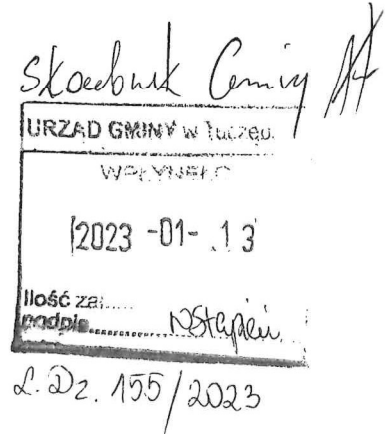 Skarbnik Gminy
URZĄD GMINY w Tuczęp.
WPŁYNĘŁO
2023 -01- .13
Ilość zał......
podpis............... NStępień
L. Dz. 155/2023